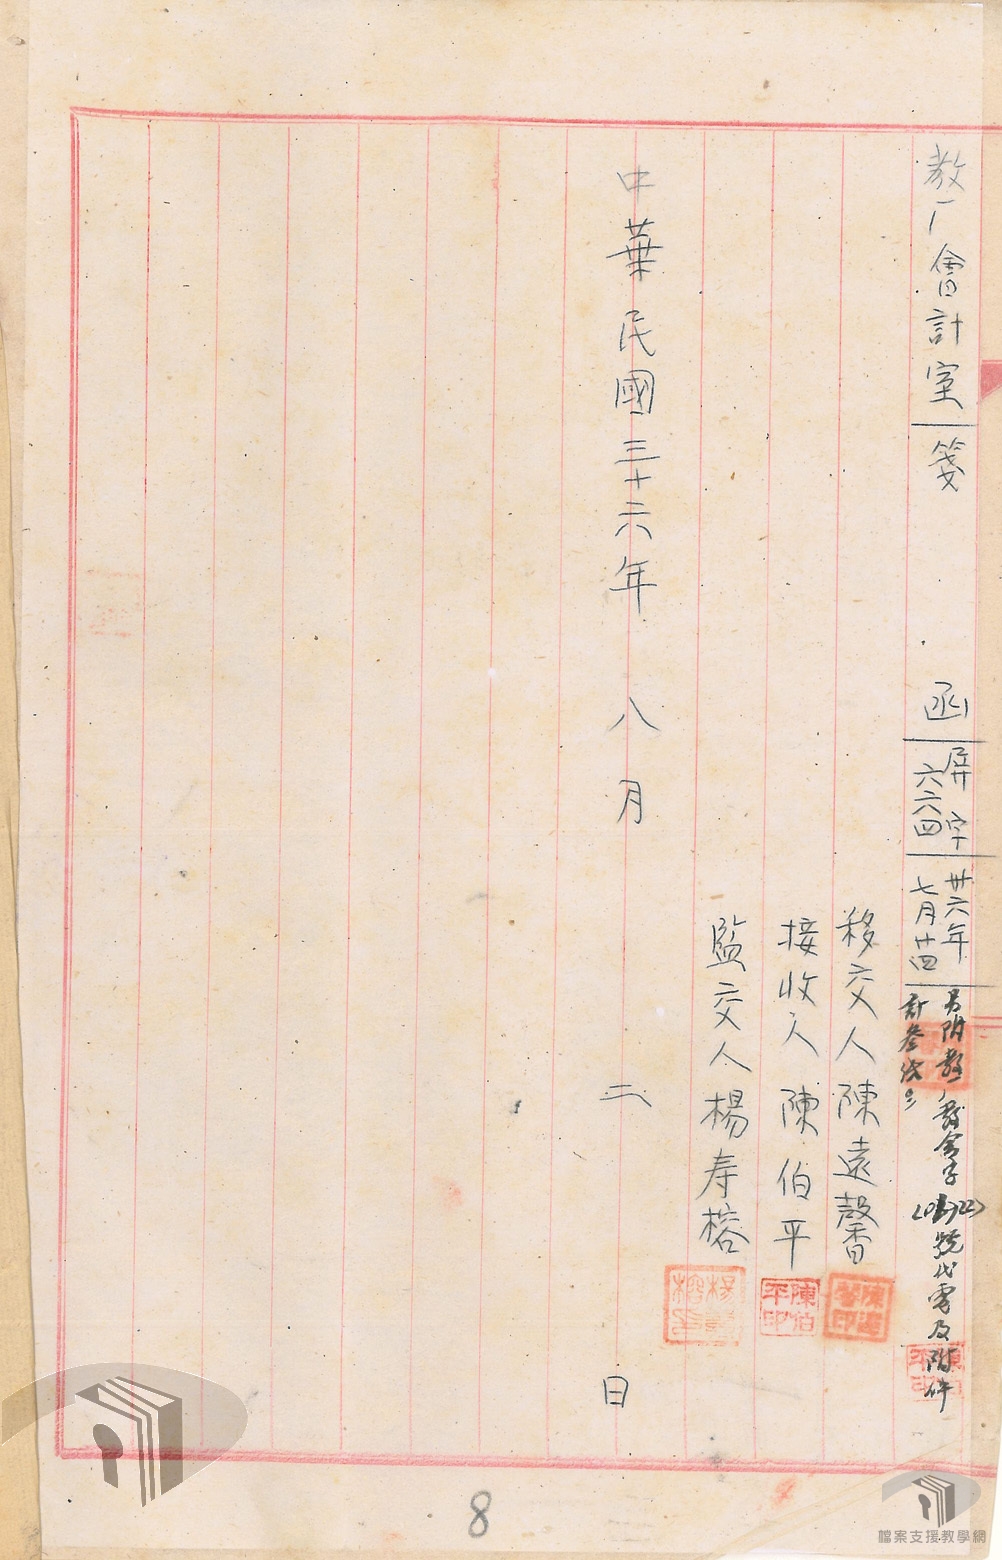 教厂會計室 箋 函
屏字
六六四
卅六年
七月廿四
另附教厂
號代電及附件
計叁
移交人陳遠馨
陳遠馨印
接收人陳伯平
陳伯平印
監交人楊寿榕
中華民國三十六年八月二日
8
檔案支援教學網